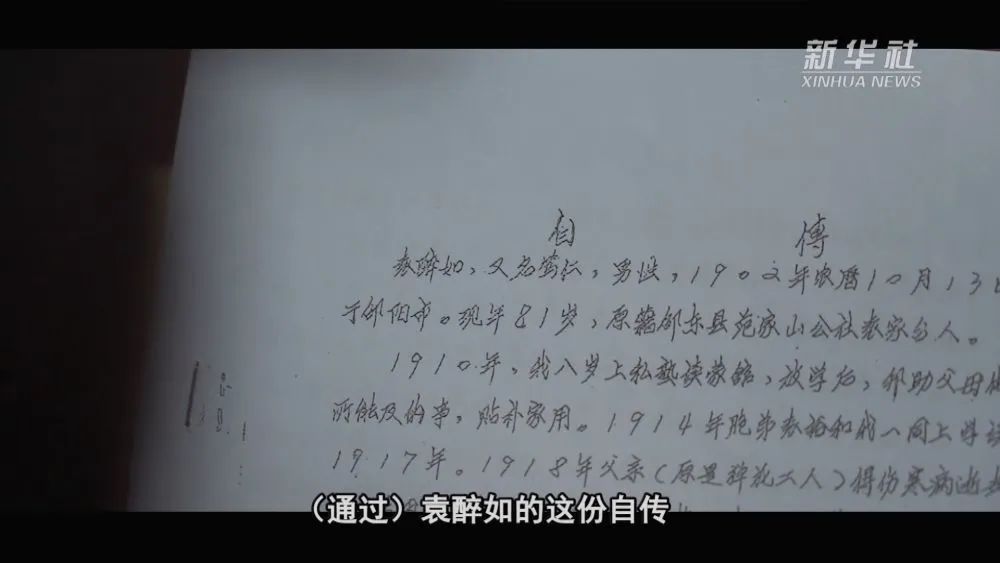 新华社
XINHUA NEWS
自 传
袁醉如，又名 仁，男性，1902年农曆10月13
于邵阳市。现年81岁，原籍邵东县范家山公社袁家 人。
1910年，我八岁上私塾读蒙舘，放学后，帮助父母
所能及的事，贴补家用。1914年胞弟袁裕和我一同上学读
1917年。1918年父亲（原是弹花工人）得伤寒病逝
（通过）袁醉如的这份自传